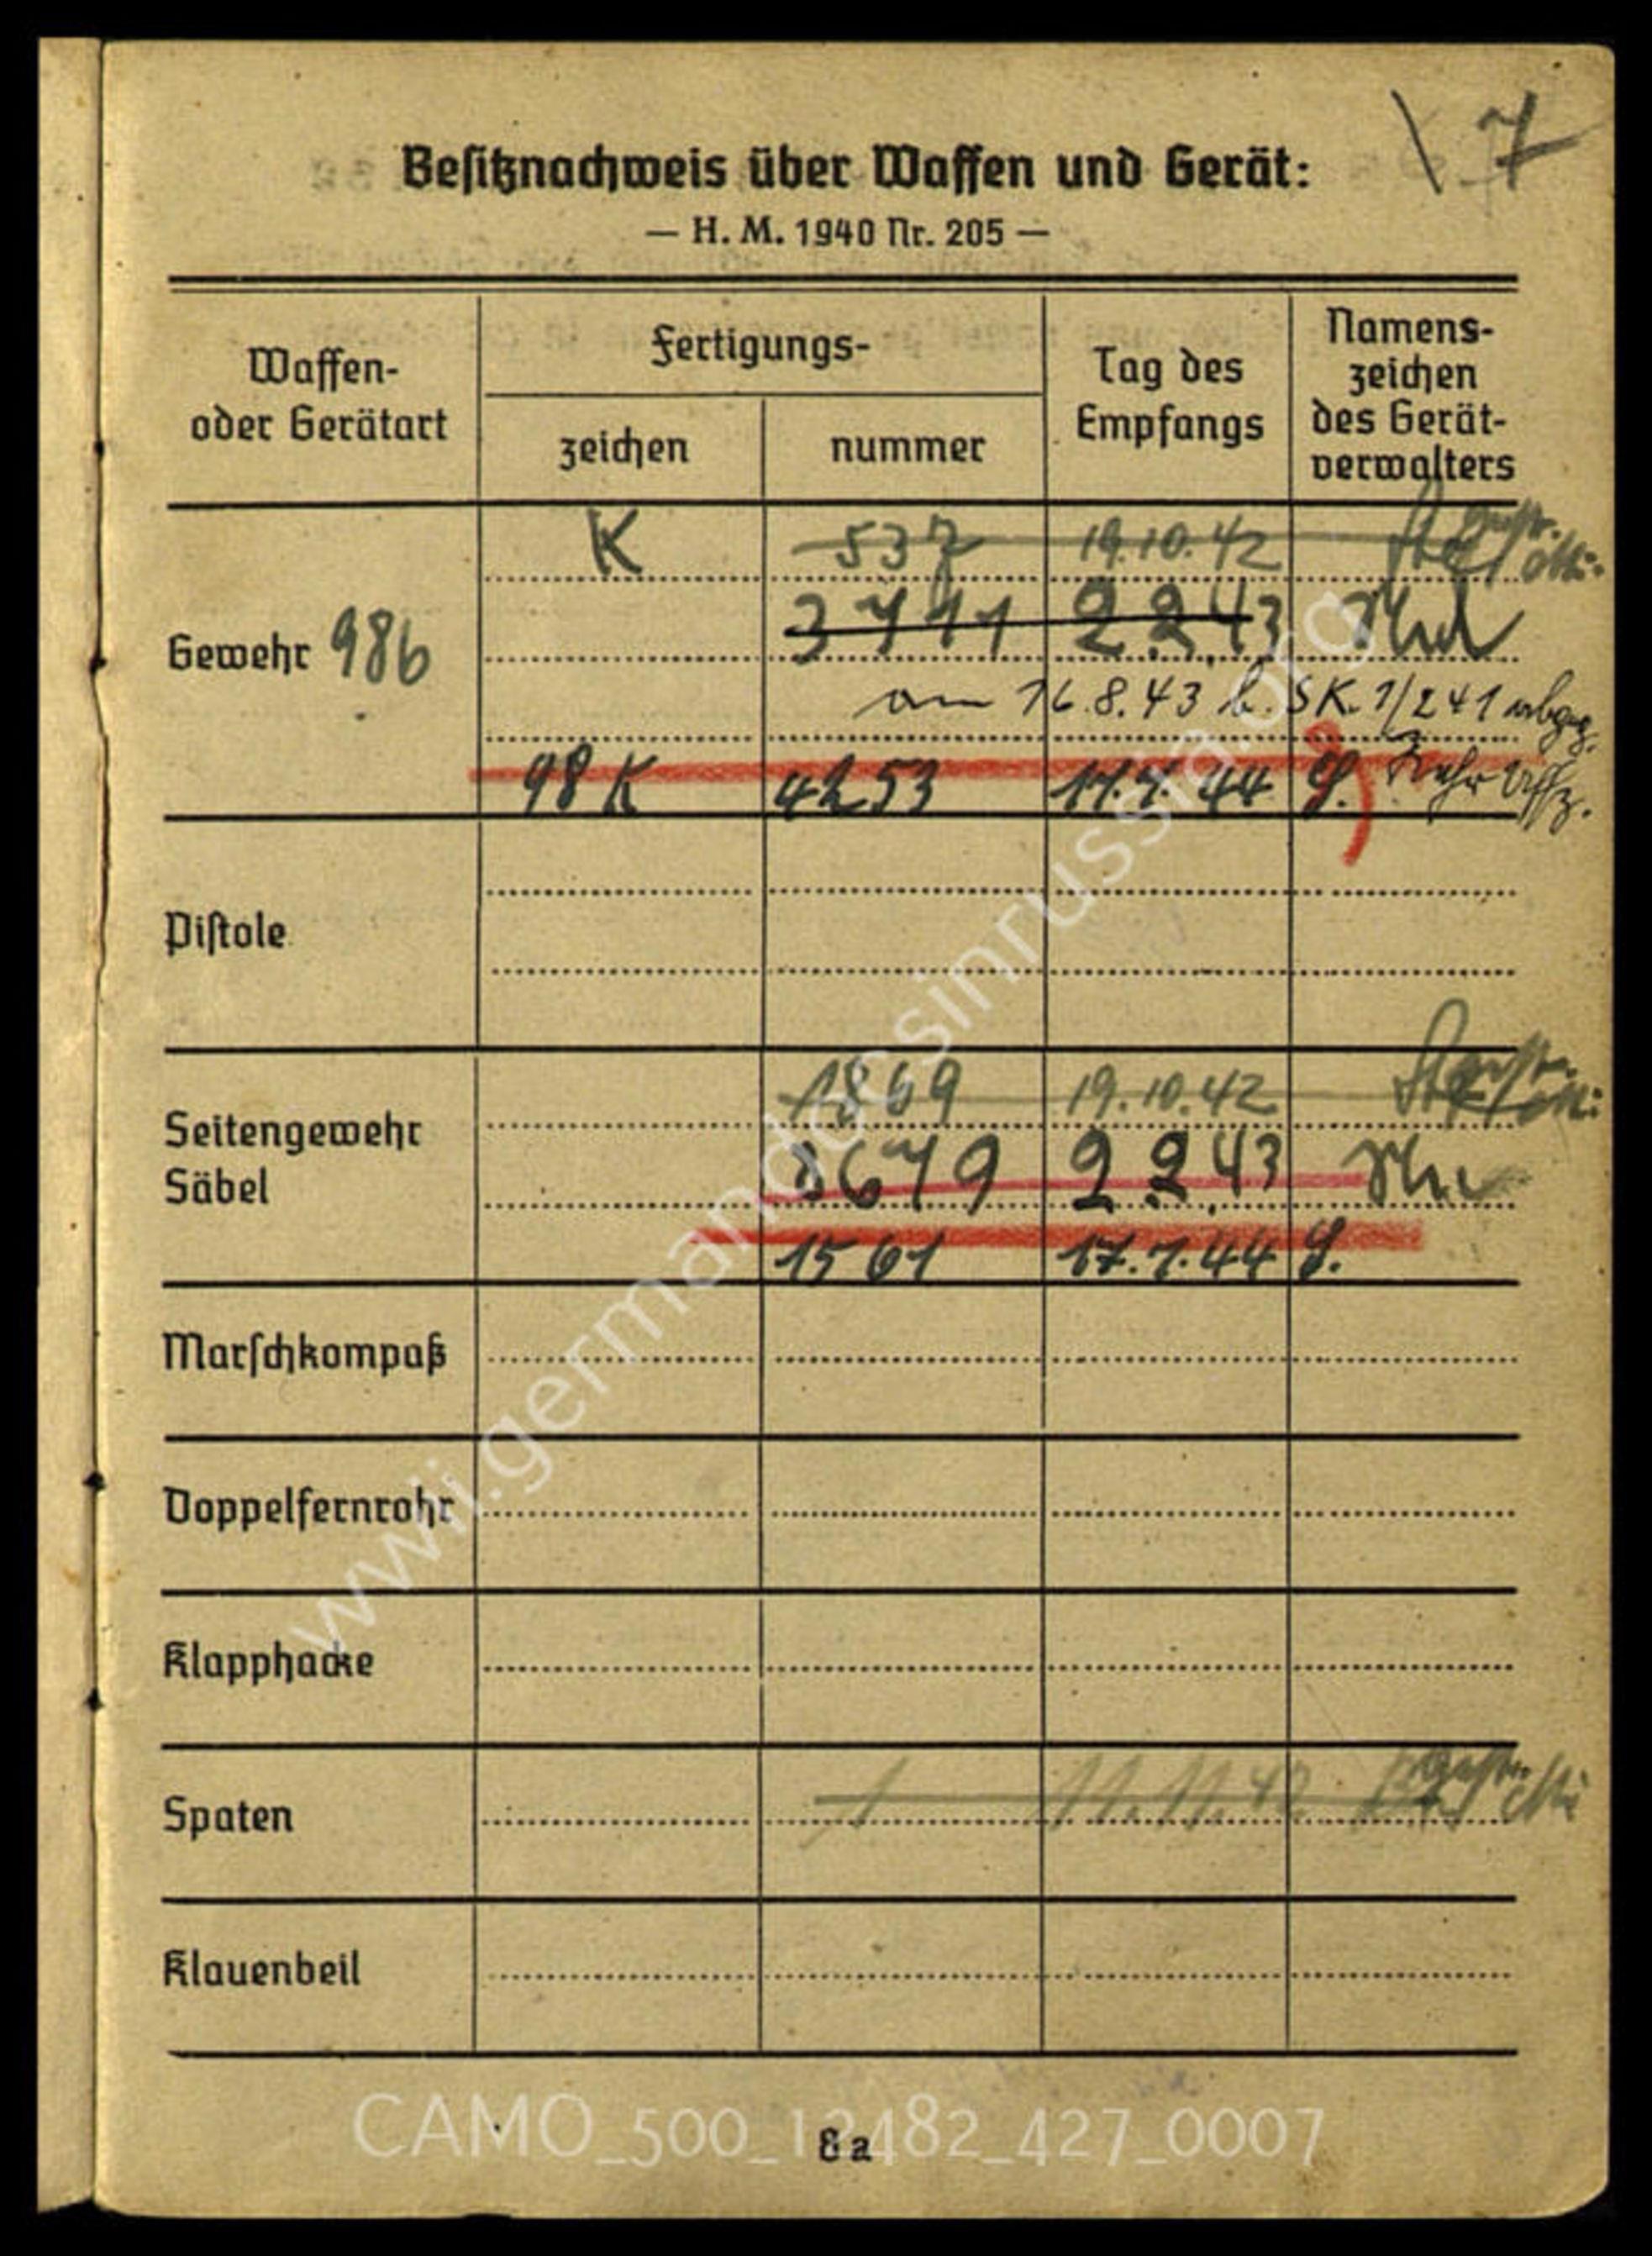 \ 7
Besitznachweis über Waffen und Gerät:
— H. M. 1940 Nr. 205 —
Waffen-
oder Gerätart
Fertigungs-
zeichen
nummer
Tag des
Empfangs
Namens-
zeichen
des Gerät-
verwalters
K 537 19.10.42
Gewehr 986
3711 2.2.43
am 16.8.43 b. SK. 1/241 abgeg.
98 K 4253 17.7.44 G.
Pistole
1869 19.10.42
Seitengewehr
Säbel
8679 2.2.43
1561 17.7.44 G.
Marschkompaß
Doppelfernrohr
Klapphacke
Spaten 1 11.11.42
Klauenbeil
8a
www.germandocsinrussia.org
CAMO_500_12482_427_0007